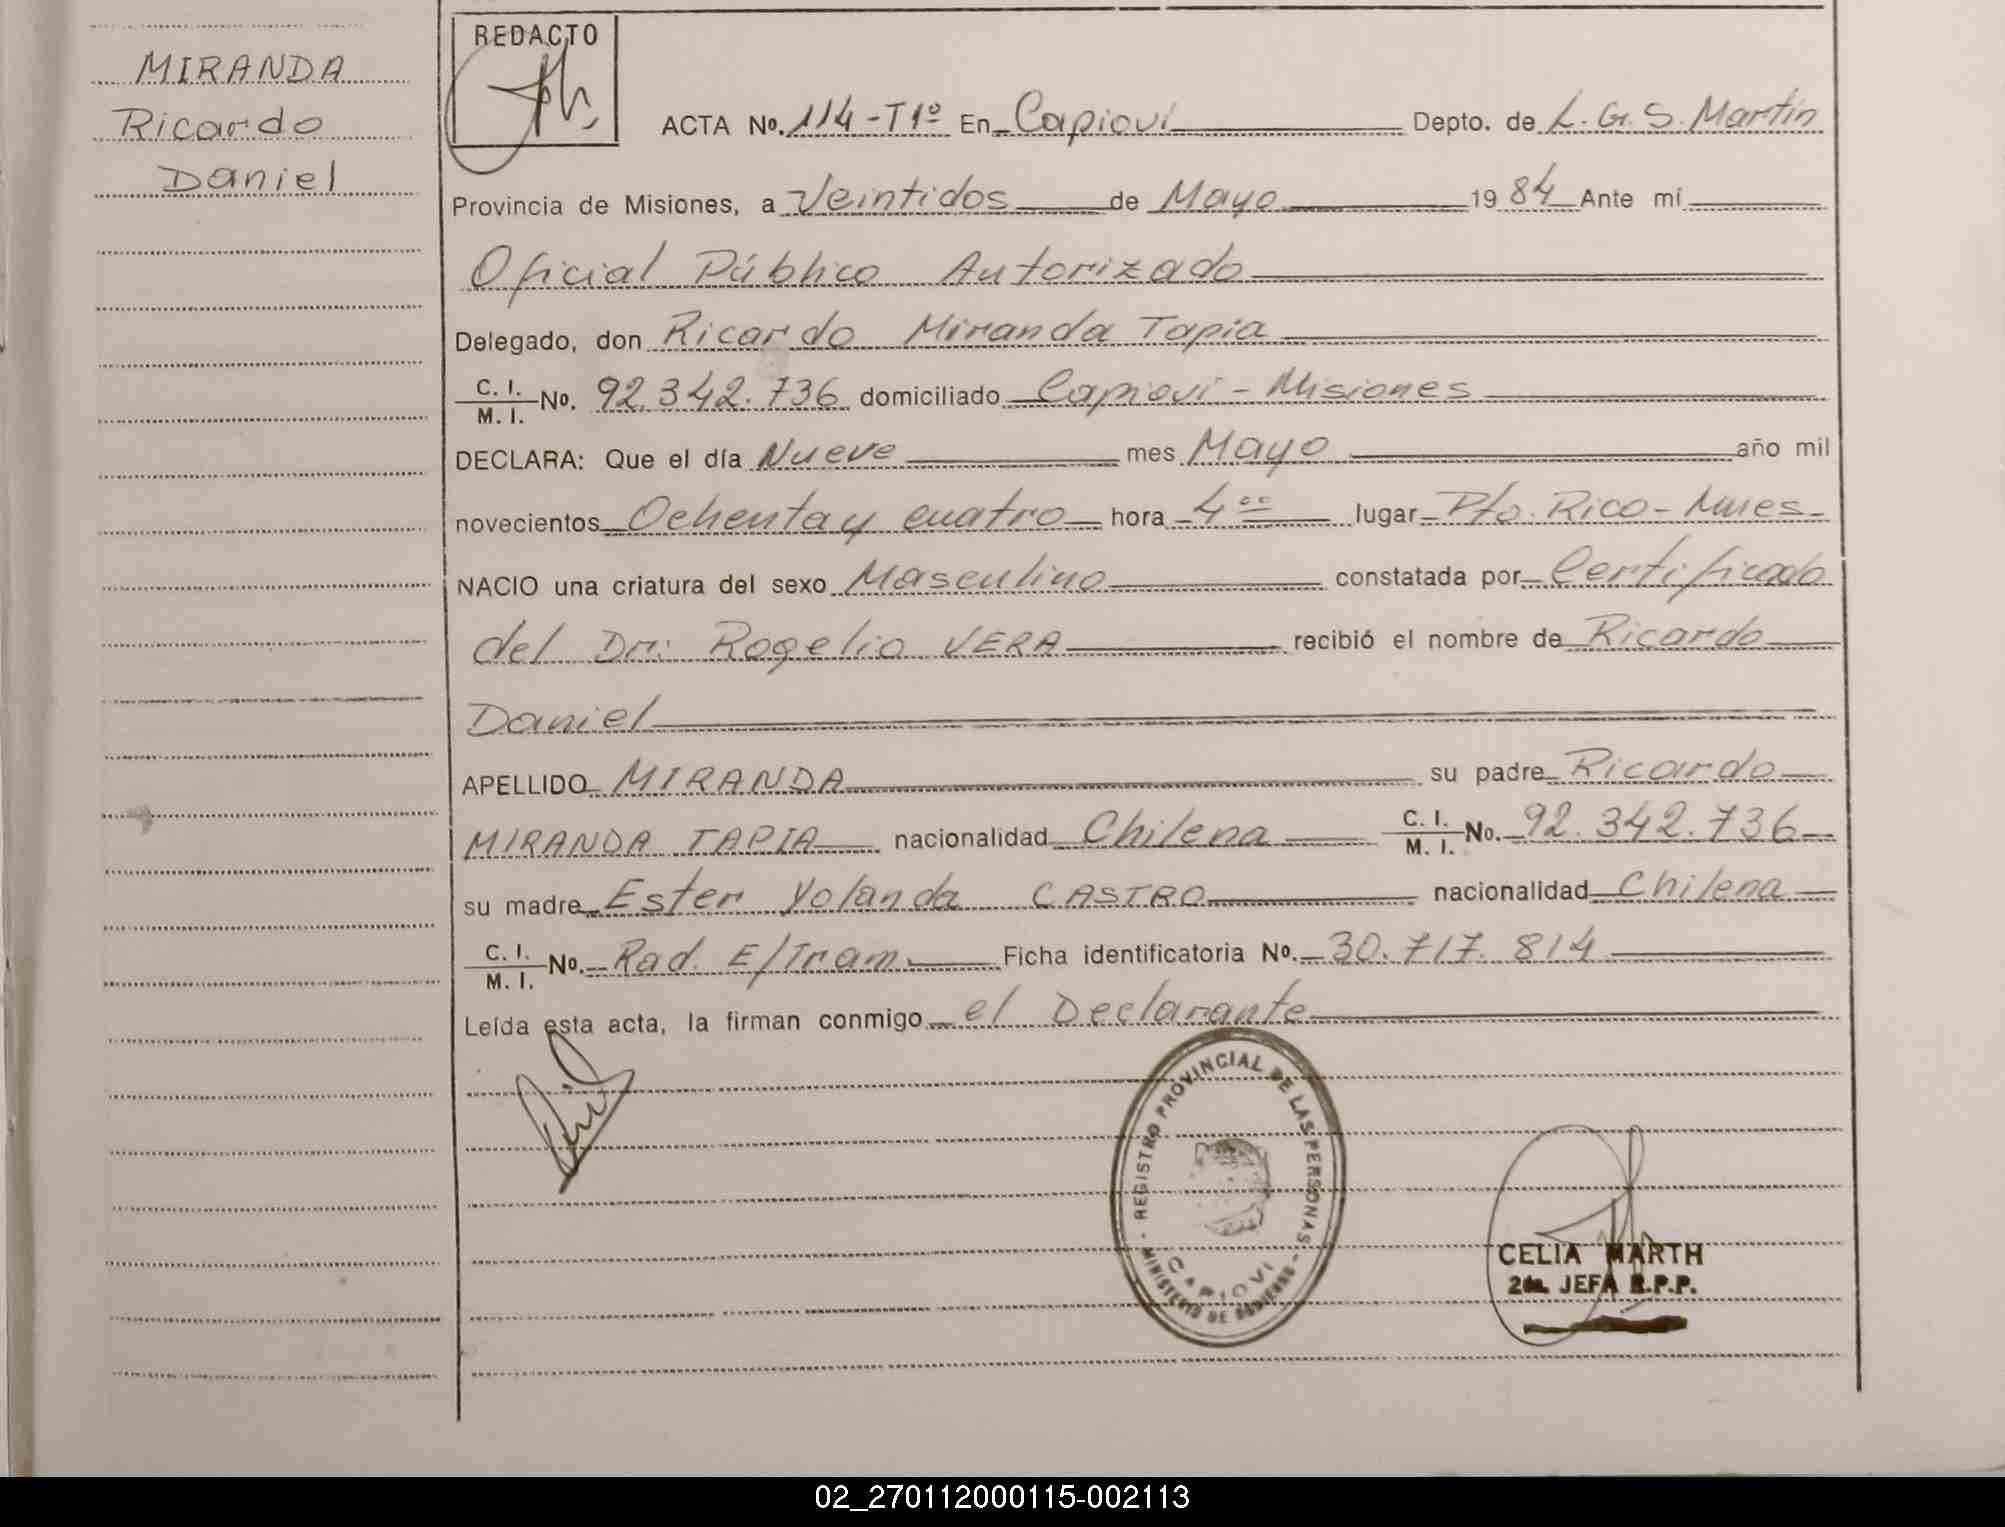 MIRANDA
Ricardo
Daniel
REDACTO
ACTA No. 114-T1º En Capioví Depto. de L. G. S. Martín
Provincia de Misiones, a Veintidos de Mayo 1984 Ante mí
Oficial Público Autorizado
Delegado, don Ricardo Miranda Tapia
C. I. / M. I. No. 92.342.736 domiciliado Capioví - Misiones
DECLARA: Que el día Nueve mes Mayo año mil
novecientos Ochenta y cuatro hora 4 ºº lugar Pto. Rico - Mnes -
NACIO una criatura del sexo Masculino constatada por Certificado
del Dr: Rogelio VERA recibió el nombre de Ricardo
Daniel
APELLIDO MIRANDA su padre Ricardo
MIRANDA TAPIA nacionalidad Chilena C. I. / M. I. No. 92.342.736
su madre Ester Yolanda CASTRO nacionalidad Chilena
C. I. / M. I. No. Rad. E/Tram. Ficha identificatoria No. 30.717.814
Leída esta acta, la firman conmigo el Declarante
REGISTRO PROVINCIAL DE LAS PERSONAS
CAPIOVI
MINISTERIO DE GOBIERNO
CELIA MARTH
2da. JEFA R.P.P.
02_270112000115-002113